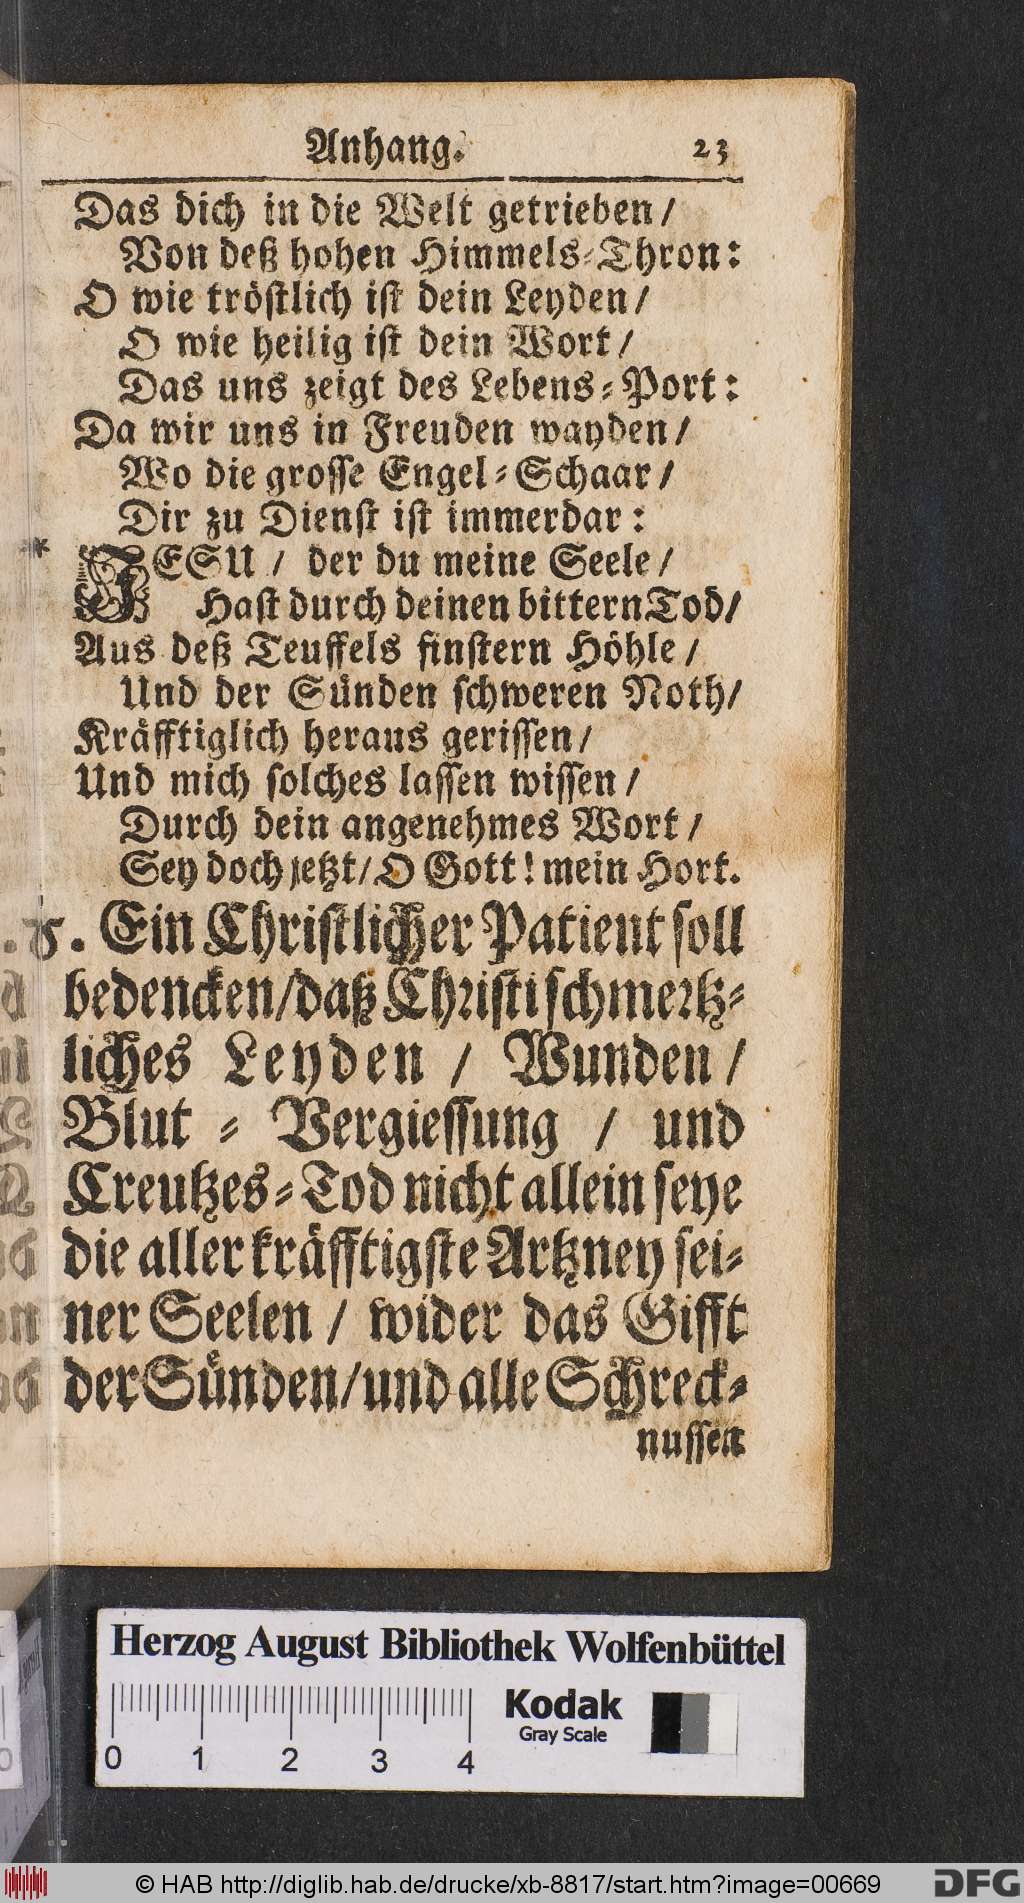 Anhang. 23
Das dich in die Welt getrieben /
Von deß hohen Himmels-Thron:
O wie tröstlich ist dein Leyden /
O wie heilig ist dein Wort /
Das uns zeigt des Lebens-Port:
Da wir uns in Freuden wayden /
Wo die grosse Engel-Schaar /
Dir zu Dienst ist immerdar:
* JESU / der du meine Seele /
Hast durch deinen bittern Tod /
Aus deß Teuffels finstern Höhle /
Und der Sünden schweren Noth /
Kräfftiglich heraus gerissen /
Und mich solches lassen wissen /
Durch dein angenehmes Wort /
Sey doch jetzt / O Gott! mein Hort.
Ein Christlicher Patient soll
bedencken / daß Christi schmertz-
liches Leyden / Wunden /
Blut-Vergiessung / und
Creutzes-Tod nicht allein seye
die aller kräfftigste Artzney sei-
ner Seelen / wider das Gifft
der Sünden / und alle Schreck-
nussen
Herzog August Bibliothek Wolfenbüttel
Kodak
Gray Scale
0 1 2 3 4
© HAB http://diglib.hab.de/drucke/xb-8817/start.htm?image=00669
DFG